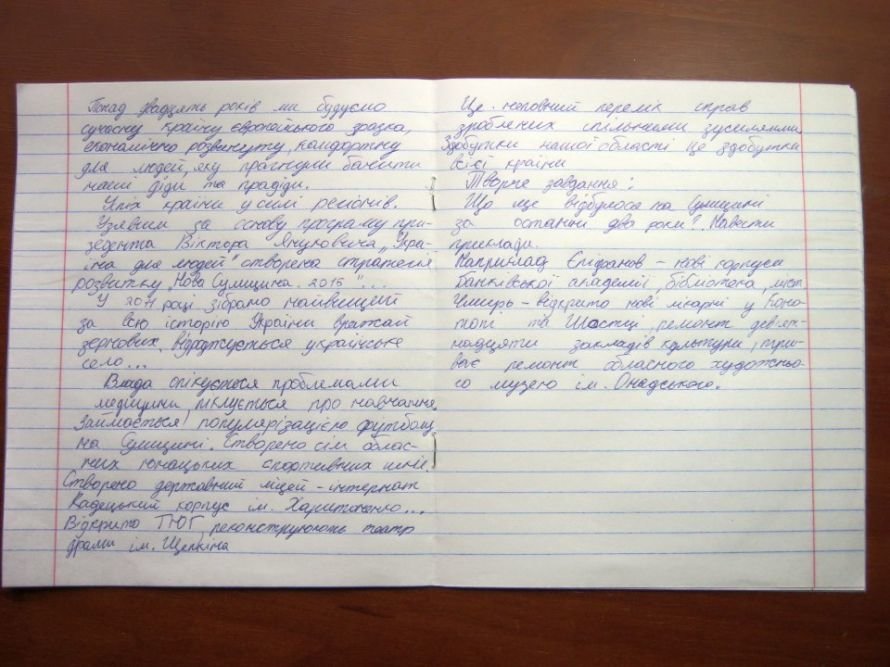 Понад двадцять років ми будуємо
сучасну країну європейського зразка,
економічно розвинуту, комфортну
для людей, яку прагнули бачити
наші діди та прадіди.
Успіх країни у силі регіонів.
Узявши за основу програму пре-
зедента Віктора Януковича „Укра-
їна для людей" створена стратегія
розвитку „Нова Сумщина. 2015"...
У 2011 році зібрано найвищий
за всю історію України врожай
зернових. Відроджується українське
село...
Влада опікується проблемами
медицини, піклується про навчання.
Займається популярізацією футболу
на Сумщині. Створено сім облас-
них юнацьких спортивних шкіл.
Створено державний ліцей-інтернат
Кадецький корпус ім. Харитоненко...
Відкрито ТЮГ, реконструюють театр
драми ім. Щепкіна
Це неповний перелік справ
зроблених спільними зусиллями
Здобутки нашої області це здобутки
всієї країни
Творче завдання:
Що ще відбулося на Сумщині
за останні два роки? Навести
приклади.
Наприклад Єпіфанов – нові корпуси
банківської академії, бібліотека, міст
Чмирь – відкрито нові лікарні у Коно-
топі та Шостці, ремонт дев'ят-
надцяти закладів культури, три-
ває ремонт обласного художньо-
го музею ім. Онадського.